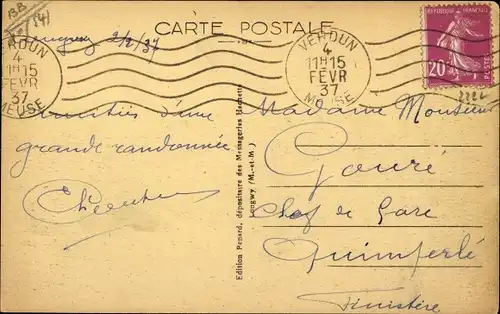 CARTE POSTALE
2/2/37
VERDUN
4
11H15
FEVR
37
MEUSE
VERDUN
4
11H15
FEVR
37
MEUSE
REPUBLIQUE FRANÇAISE
20c
POSTES
d'une
grande randonnée
Edition Penard, dépositaire des Messageries Hachette
Longwy (M.-et-M.)
Madame Monsieur
Gouré
Chef de Gare
Quimperlé
Finistère